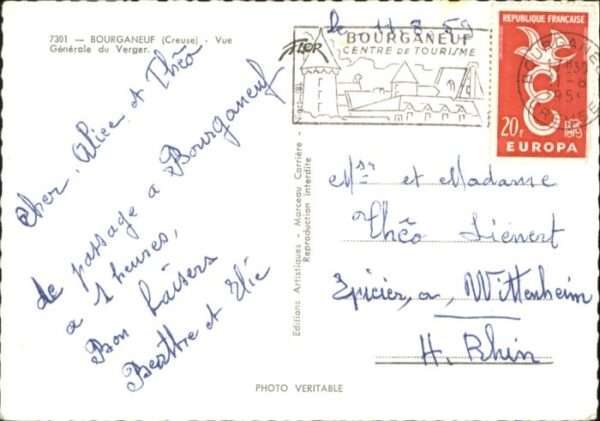 7301 — BOURGANEUF (Creuse) - Vue
Générale du Verger.
Cher. Alice et Théo
de passage a Bourganeuf
a 1 heures,
Bon baisers
Beattre et Elie
Editions Artistiques - Marceau Carrière -
Reproduction interdite
PHOTO VERITABLE
le 11-8-59
FLOR
BOURGANEUF
CENTRE DE TOURISME
REPUBLIQUE FRANÇAISE
20F
EUROPA
Msr et Madame
Théo Liénert
Epicier, a, Wittenheim
H. Rhin